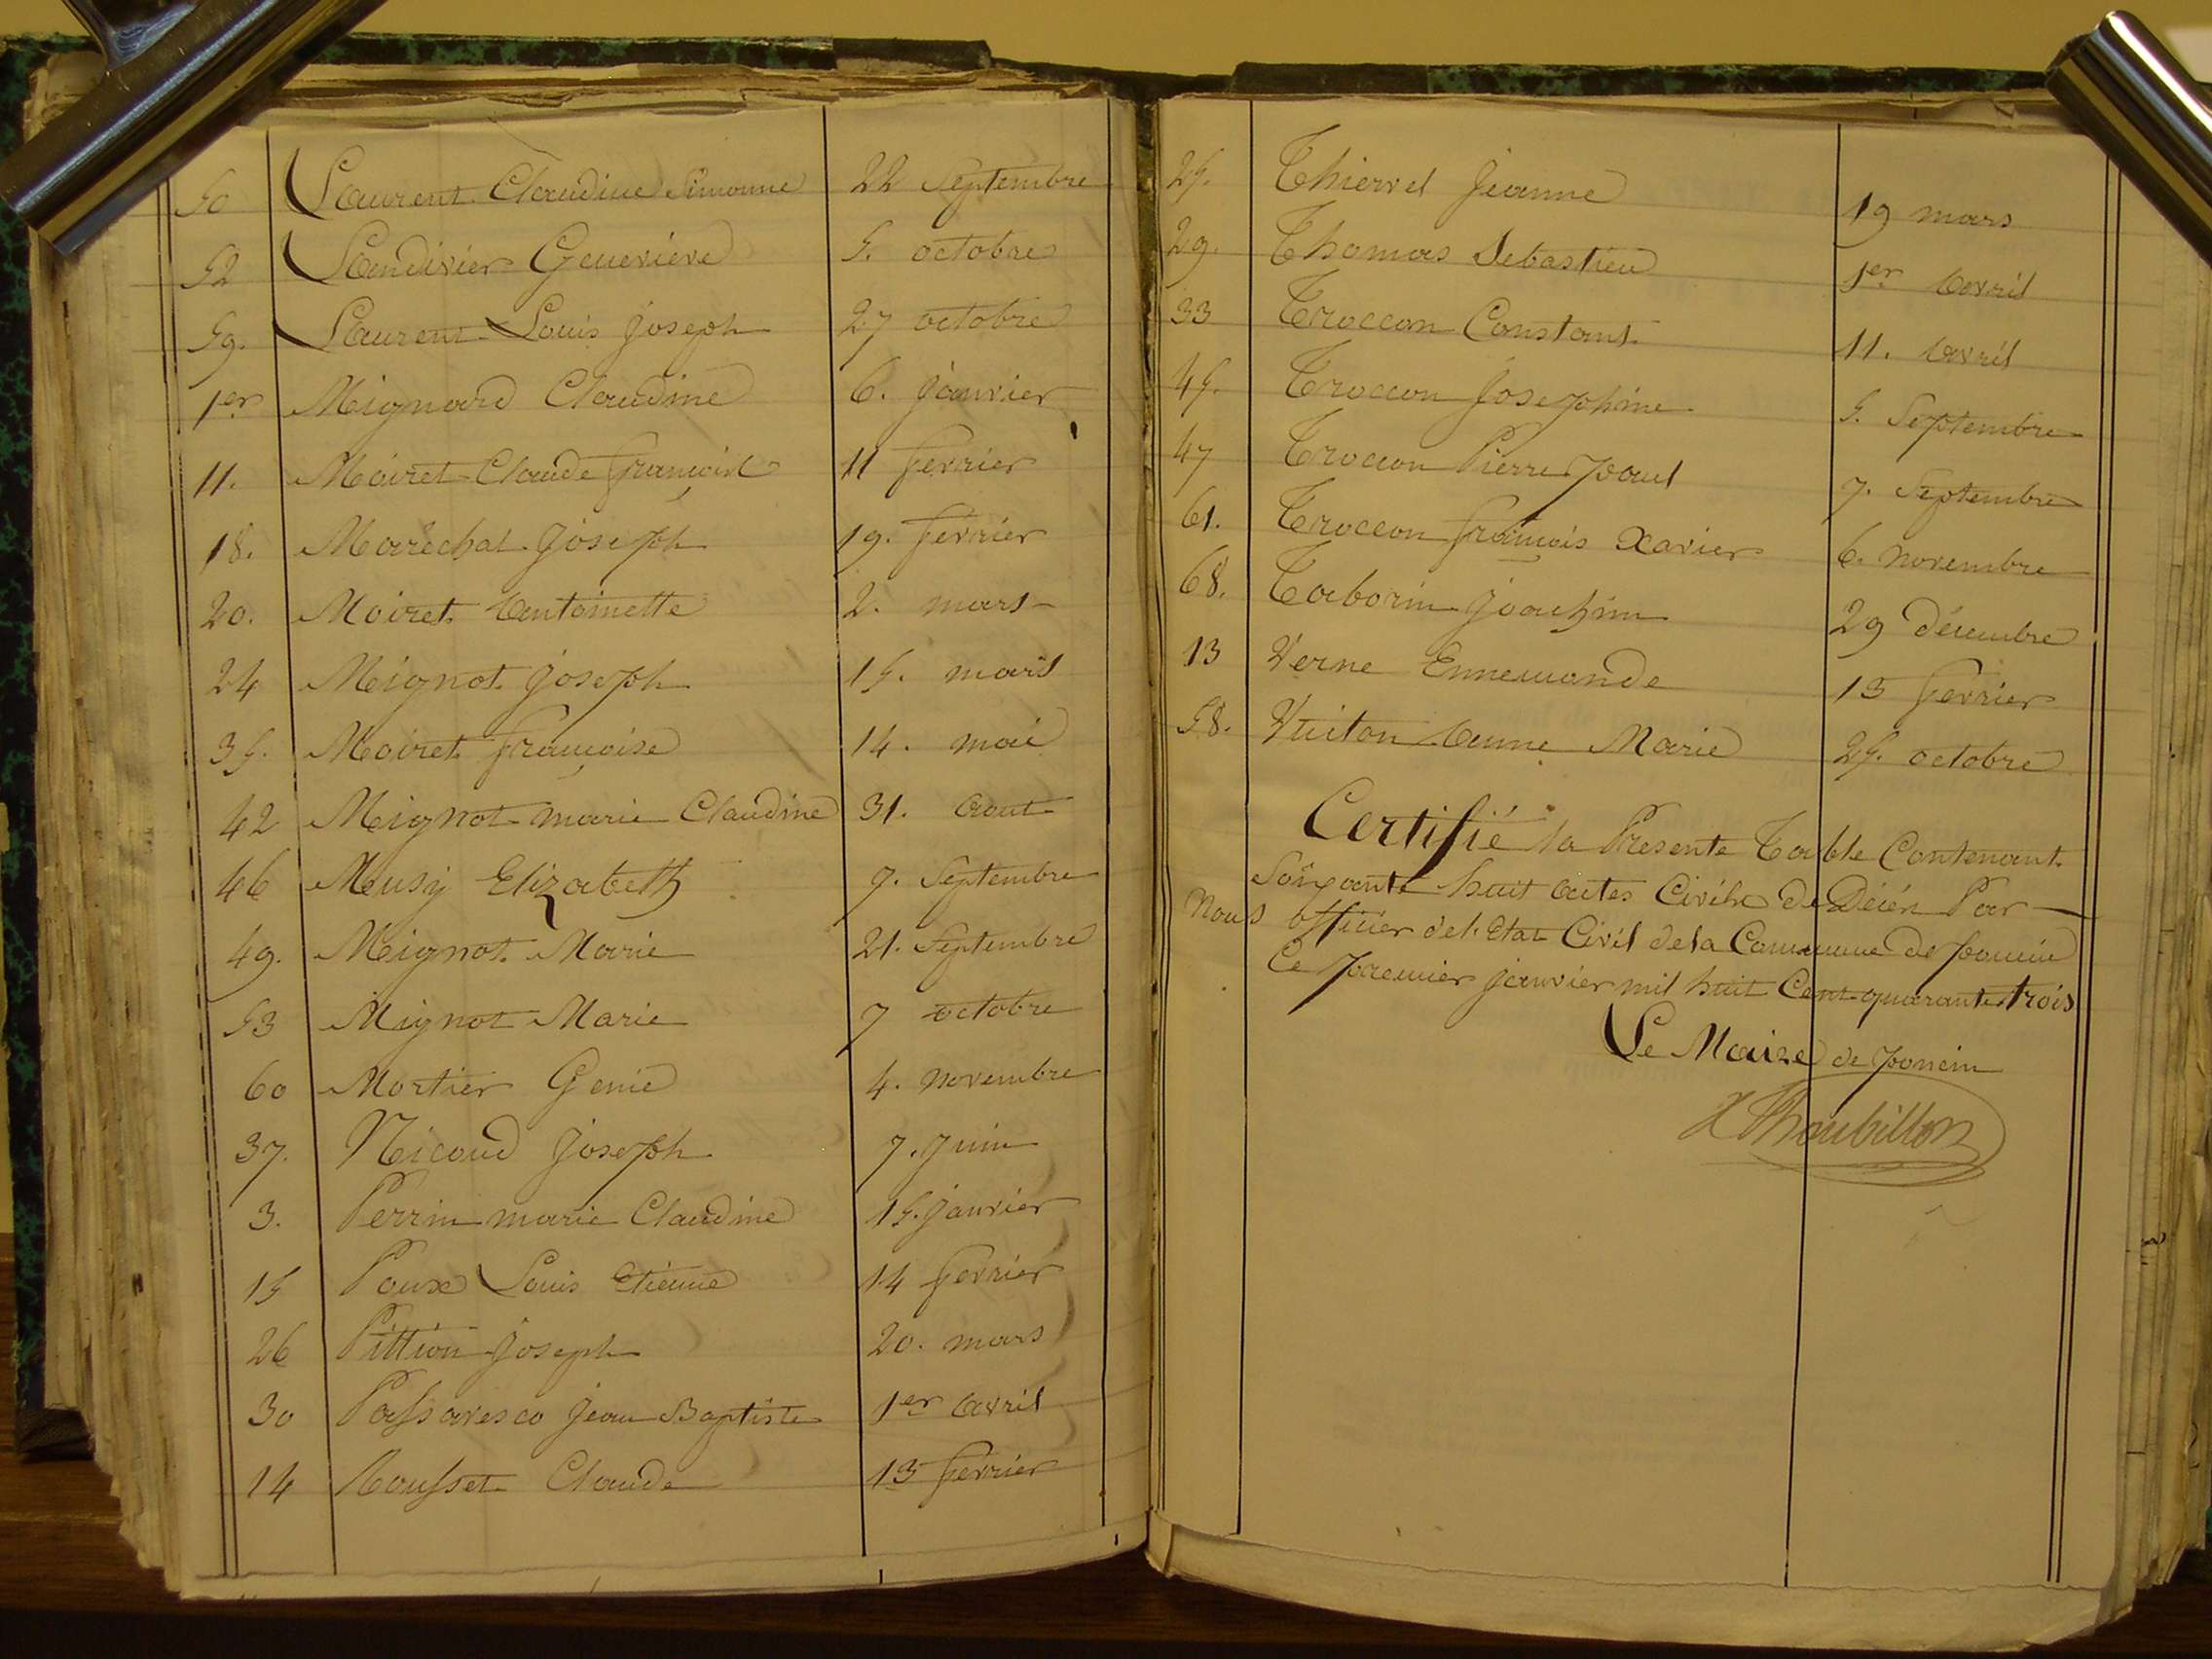 50 Laurent Claudine Simonne 22 Septembre
52 Landivier Genevieve 5. octobre
59. Laurent Louis Joseph 27 octobre
1er Mignard Claudine 6. janvier
11. Moiret Claude François 11 fevrier
18. Maréchal Joseph 19. fevrier
20. Moiret Antoinette 2. mars
24 Mignot Joseph 15. mars
35. Moiret françoise 14. mai
42 Mignot marie Claudine 31. Aout
46 Musy Elizabeth 7. Septembre
49. Mignot Marie 21. Septembre
53 Mignot Marie 7 octobre
60 Mortier Genie 4. novembre
37. Nicoud Joseph 7. Juin
3. Perrin marie Claudine 15. janvier
15 Poux Louis Etienne 14 fevrier
26 Pittion Joseph 20. mars
30 Passaresco Jean Baptiste 1er avril
14 Rousset Claude 13 fevrier
25. Thiervel Jeanne 19 mars
29. Thomas Sebastien 1er Avril
33 Troccon Constant 11. Avril
45. Troccon Josephine 5. Septembre
47 Troccon Pierre paul 7. Septembre
61. Troccon françois Xavier 6. novembre
68. Taborin Joachim 29 décembre
13 Verne Ennemonde 13 fevrier
58. Vuiton Anne Marie 25. octobre
Certifié la Presente Table Contenant
Soixante huit actes Civils de Décés Par
Nous officier de l'Etat Civil de la Commune de poncin
Ce premier janvier mil huit Cent quarante trois
Le Maire de poncin